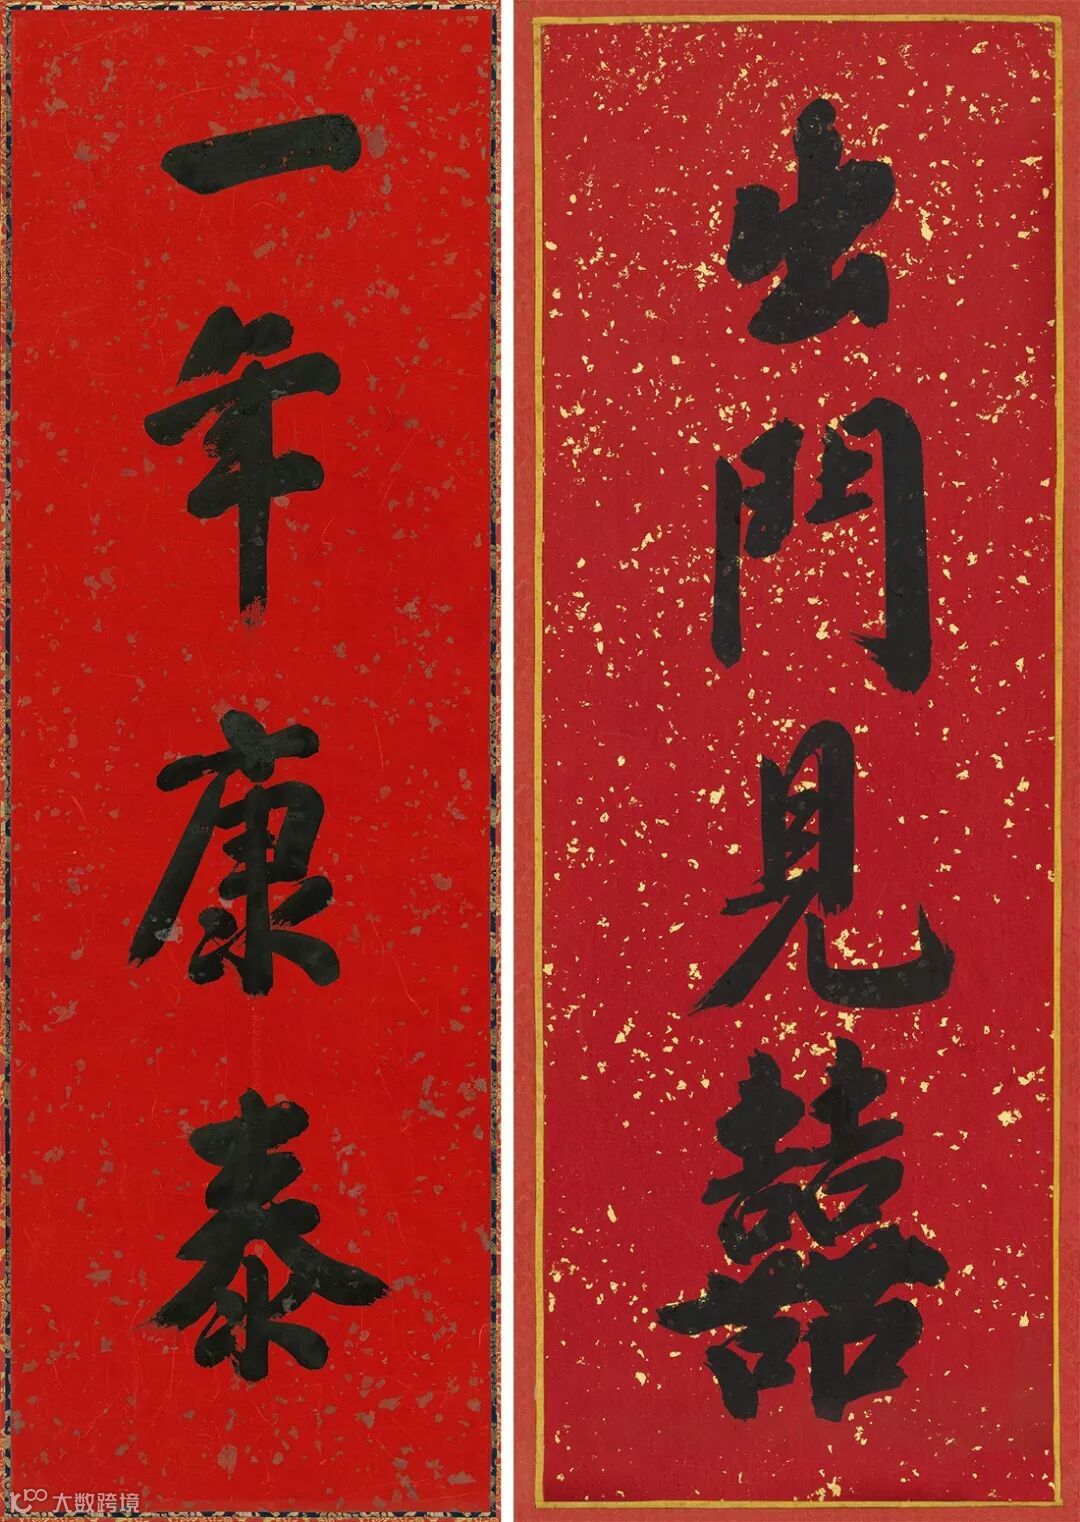 出門見囍
一年康泰
大数跨境